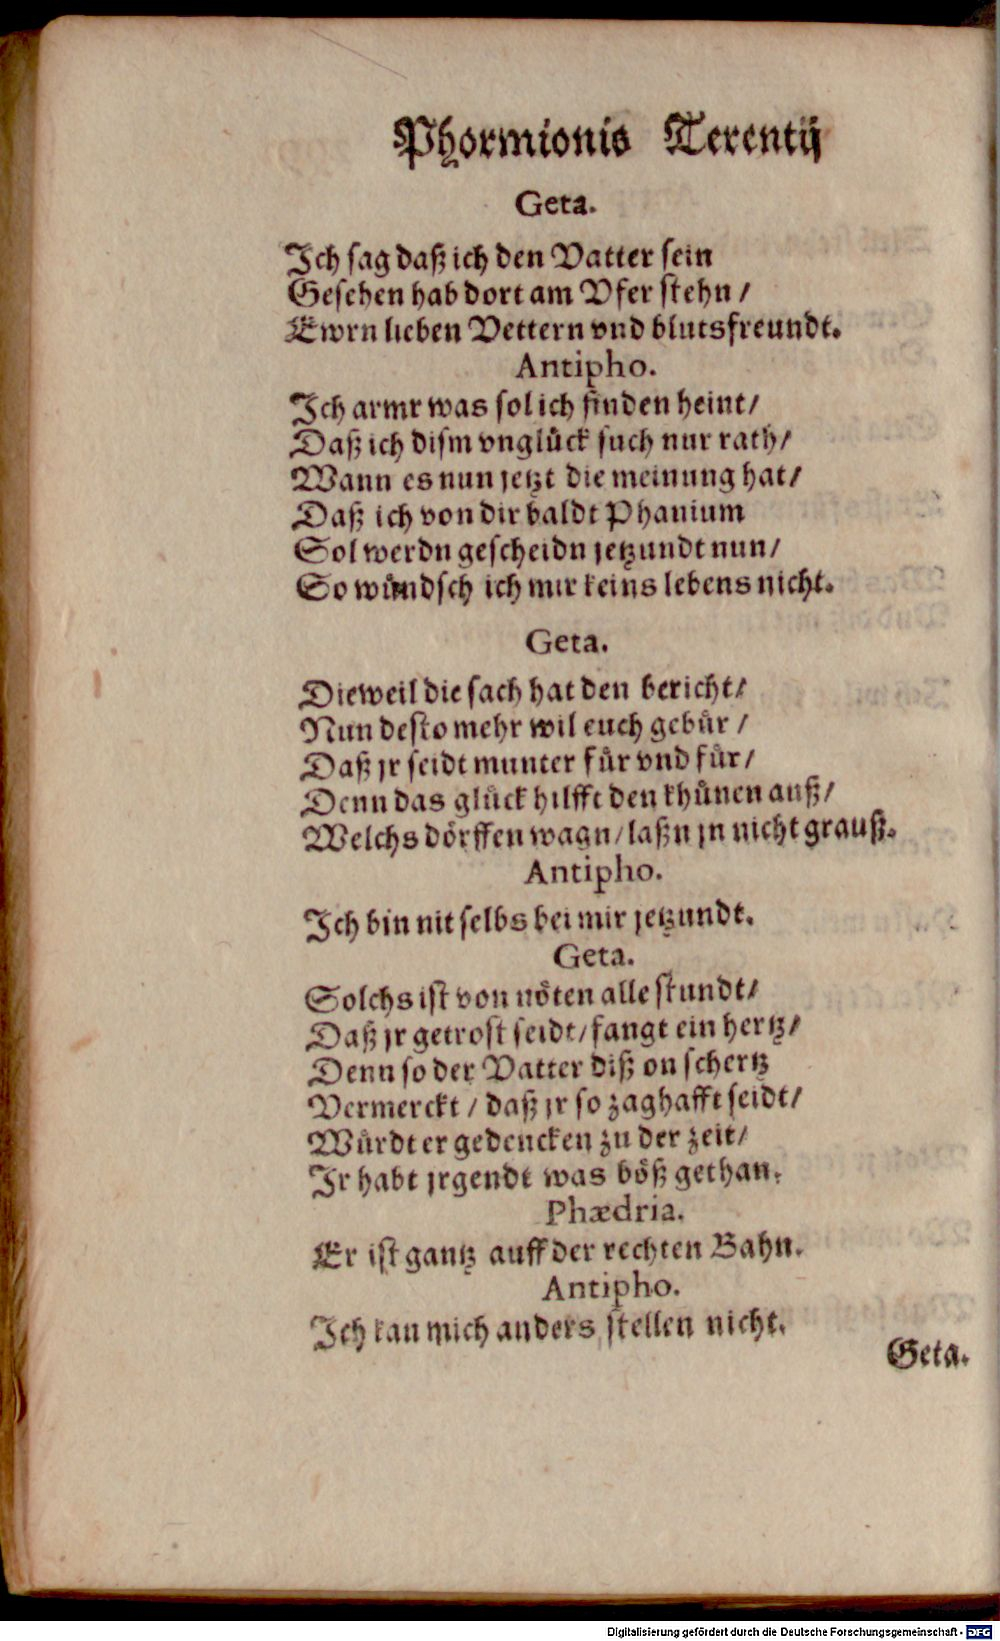 Phormionis Terentij
Geta.
Ich sag daß ich den Vatter sein
Gesehen hab dort am Vfer stehn /
Ewrn lieben Vettern vnd blutsfreundt.
Antipho.
Ich armr was sol ich finden heint/
Daß ich dism vnglück such nur rath/
Wann es nun jetzt die meinung hat/
Daß ich von dir baldt Phanium
Sol werdn gescheidn jetzundt nun/
So wündsch ich mir keins lebens nicht.
Geta.
Dieweil die sach hat den bericht/
Nun desto mehr wil euch gebür /
Daß jr seidt munter für vnd für/
Denn das glück hilfft den khünen auß/
Welchs dörffen wagn/laßn jn nicht grauß.
Antipho.
Ich bin nit selbs bei mir jetzundt.
Geta.
Solchs ist von nöten alle stundt/
Daß jr getrost seidt/fangt ein hertz/
Denn so der Vatter diß on schertz
Vermerckt / daß jr so zaghafft seidt/
Würdt er gedencken zu der zeit/
Ir habt jrgendt was böß gethan.
Phædria.
Er ist gantz auff der rechten Bahn.
Antipho.
Ich kan mich anders stellen nicht.
Geta.
Digitalisierung gefördert durch die Deutsche Forschungsgemeinschaft - DFG